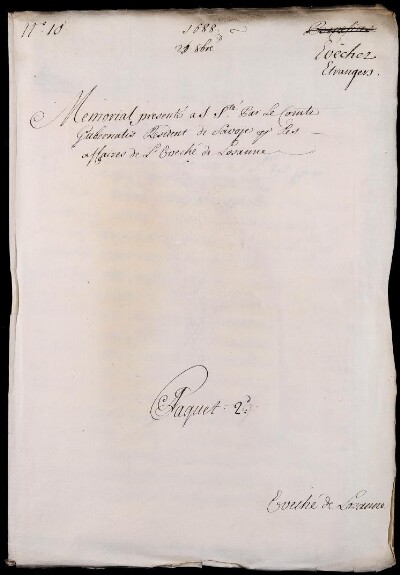 N.° 10
1688
29 8bre
Evêchez
Etrangers.
Memorial presenté a S. S.té Par Le Comte
Gubernatis Résident de Savoye pr Les
affaires de L'Eveché de Losanne
Paquet 2.d
Eveché de Lausanne